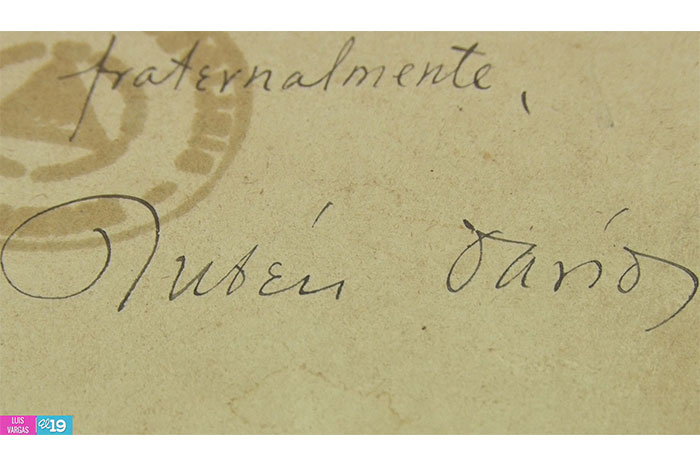 fraternalmente,
Rubén Darío
LUIS
VARGAS
el 19